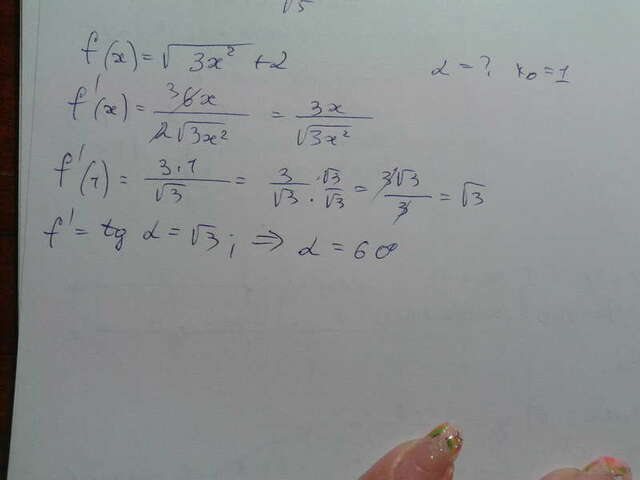 √5
f(x) = √3x² + 2 α = ? x₀ = 1
f'(x) = 3 6x / 2√3x² = 3x / √3x²
f'(1) = 3·1 / √3 = 3 / √3 · √3 / √3 = 3√3 / 3 = √3
f' = tg α = √3 ; ⇒ α = 60°